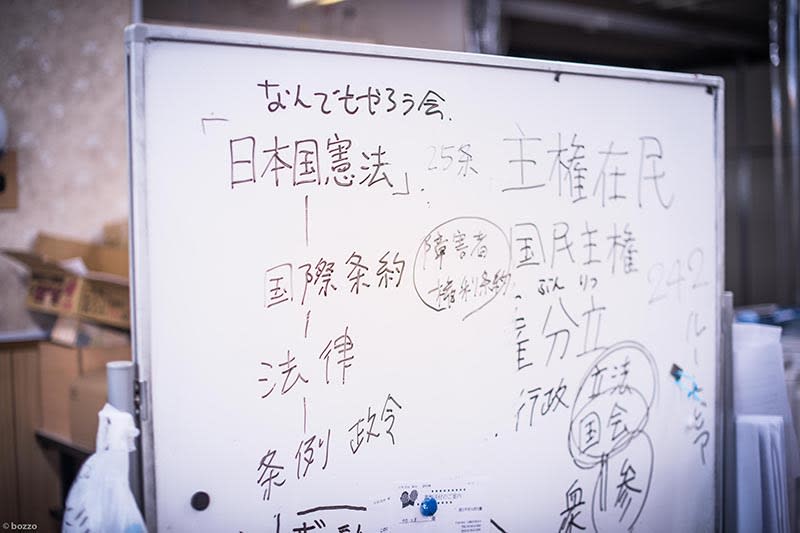 なんでもやろう会
「日本国憲法」 25条
国際条約
法律
条例 政令
障害者
権利条約
主権在民
国民主権
ぶんりつ
分立
行政
立法
国会
衆 参
242
© bozzo